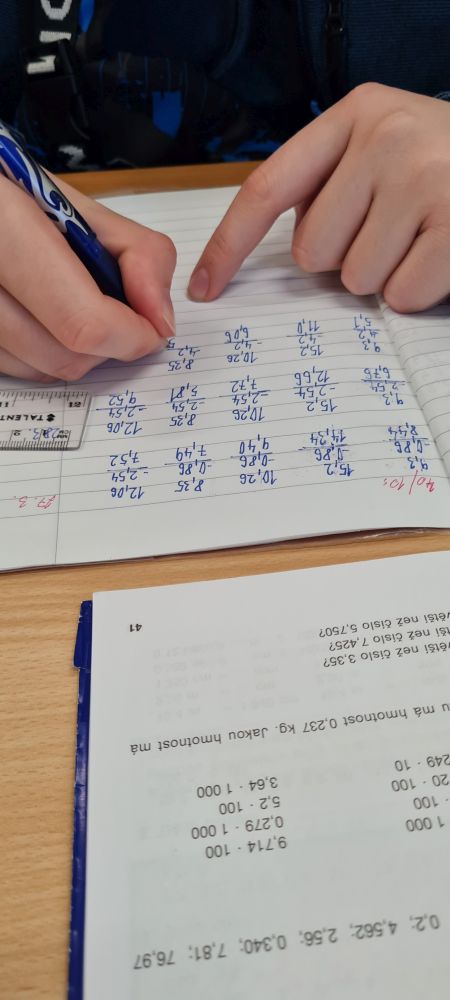 0,2; 4,562; 2,56; 0,340; 7,81; 76,97
1 000 9,714 · 100
· 100 0,279 · 1 000
20 · 100 5,2 · 100
249 · 10 3,64 · 1 000
u má hmotnost 0,237 kg. Jakou hmotnost má
větší než číslo 3,35?
tší než číslo 7,425?
větší než číslo 5,750?
41
40/10: 17. 3.
9,3 15,2 10,26 8,35 12,06
-0,86 -0,86 -0,86 -0,86 -2,54
8,44 14,34 9,40 7,49 7,52
9,3 15,2 10,26 8,35 12,06
-2,54 2,54 -2,54 2,54 -2,54
6,76 12,66 7,72 5,81 9,52
9,3 15,2 10,26 8,35
4,2 4,2 -4,2 -4,2
5,1 11,0 6,06
TALENT